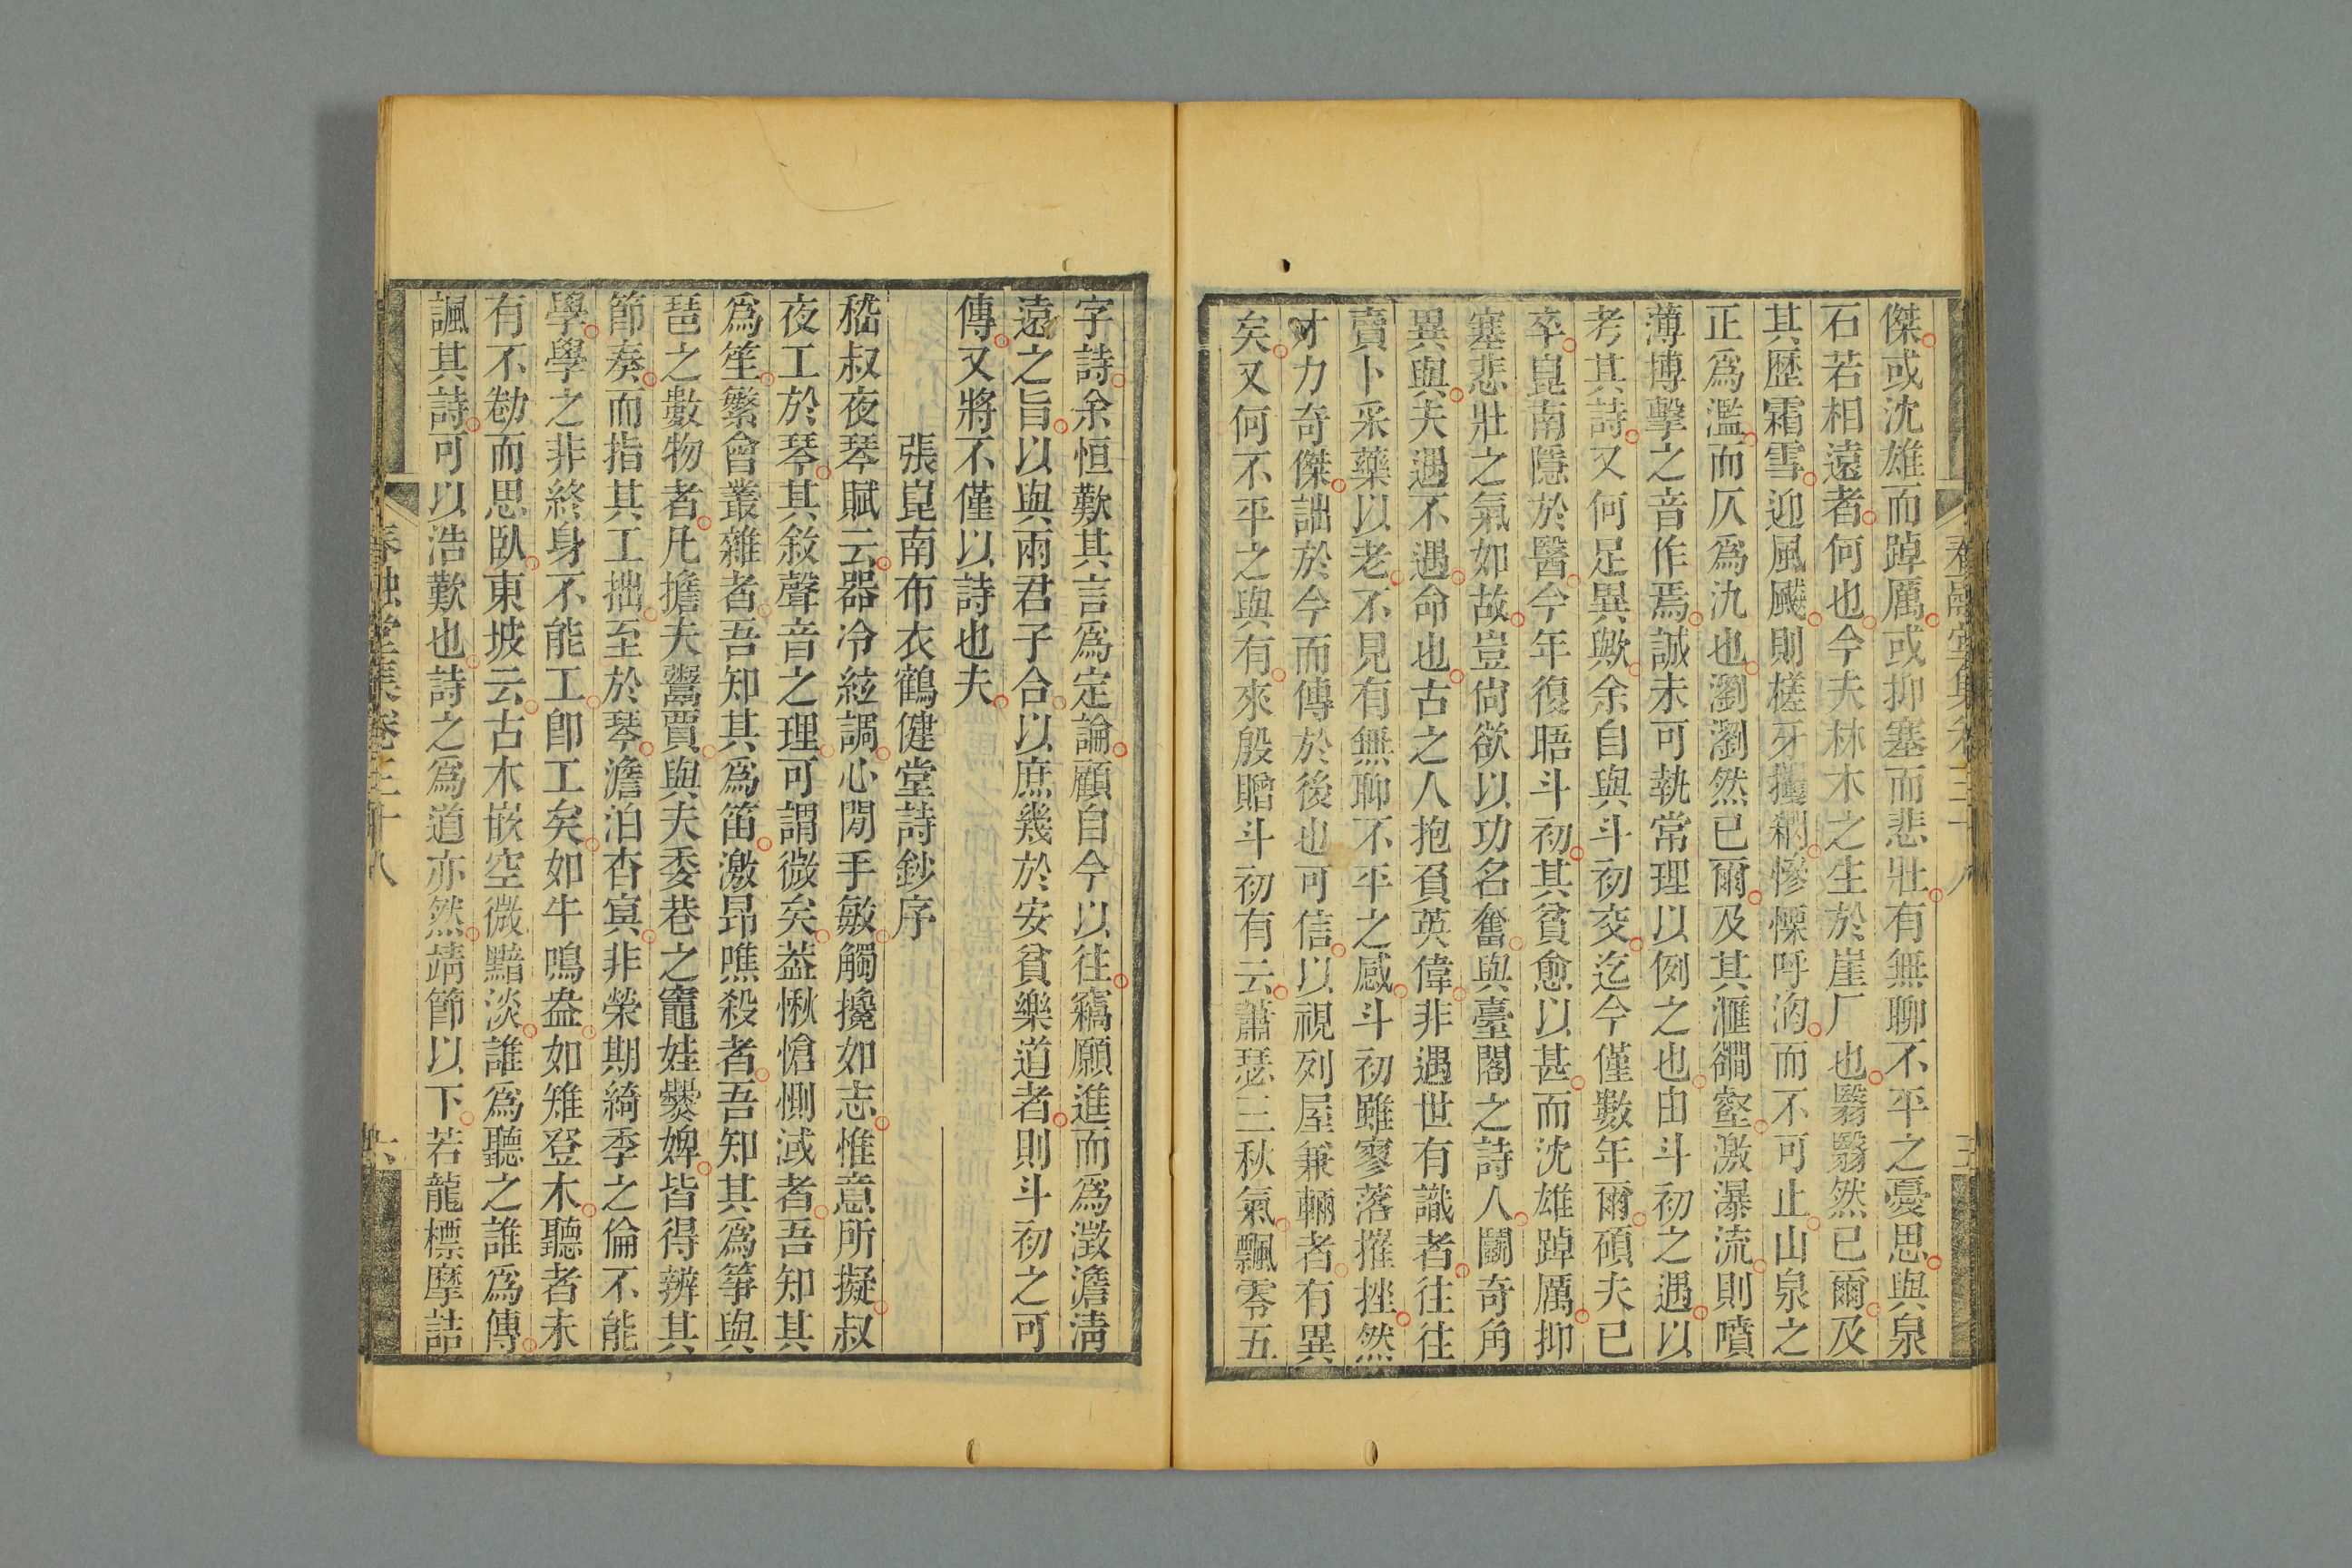 傑或沈雄而踔厲或抑塞而悲壯有無聊不平之憂思與泉
石若相遠者何也今夫林木之生於崖厂也翳翳然已爾及
其歷霜雪迎風颷則槎牙攫挐慘慄呼洶而不可止山泉之
正爲濫而仄爲氿也瀏瀏然已爾及其滙礀壑激瀑流則噴
薄搏擊之音作焉誠未可執常理以例之也由斗初之遇以
考其詩又何足異歟余自與斗初交迄今僅數年爾碩夫已
卒崑南隱於醫今年復晤斗初其貧愈以甚而沈雄踔厲抑
塞悲壯之氣如故豈尙欲以功名奮與臺閣之詩人鬭奇角
異與夫遇不遇命也古之人抱負英偉非遇世有識者往往
賣卜采藥以老不見有無聊不平之感斗初雖寥落摧挫然
才力奇傑詘於今而傳於後也可信以視列屋兼輛者有異
矣又何不平之與有來殷贈斗初有云蕭瑟三秋氣飄零五
字詩余恒歎其言爲定論顧自今以往竊願進而爲澂澹淸
遠之旨以與兩君子合以庶幾於安貧樂道者則斗初之可
傳又將不僅以詩也夫
張崑南布衣鶴健堂詩鈔序
嵇叔夜琴賦云器冷絃調心閒手敏觸攙如志惟意所擬叔
夜工於琴其敘聲音之理可謂微矣葢愀愴惻淢者吾知其
爲笙繁會叢雜者吾知其爲笛激昂噍殺者吾知其爲箏與
琶之數物者凡擔夫鬻賈與夫委巷之竈娃爨婢皆得辨其
節奏而指其工拙至於琴澹泊杳㝠非榮期綺季之倫不能
學學之非終身不能工卽工矣如牛鳴盎如雉登木聽者未
有不勌而思臥東坡云古木嵌空微黯淡誰爲聽之誰爲傳
諷其詩可以浩歎也詩之爲道亦然靖節以下若龍標摩詰
春融堂集卷三十八
六